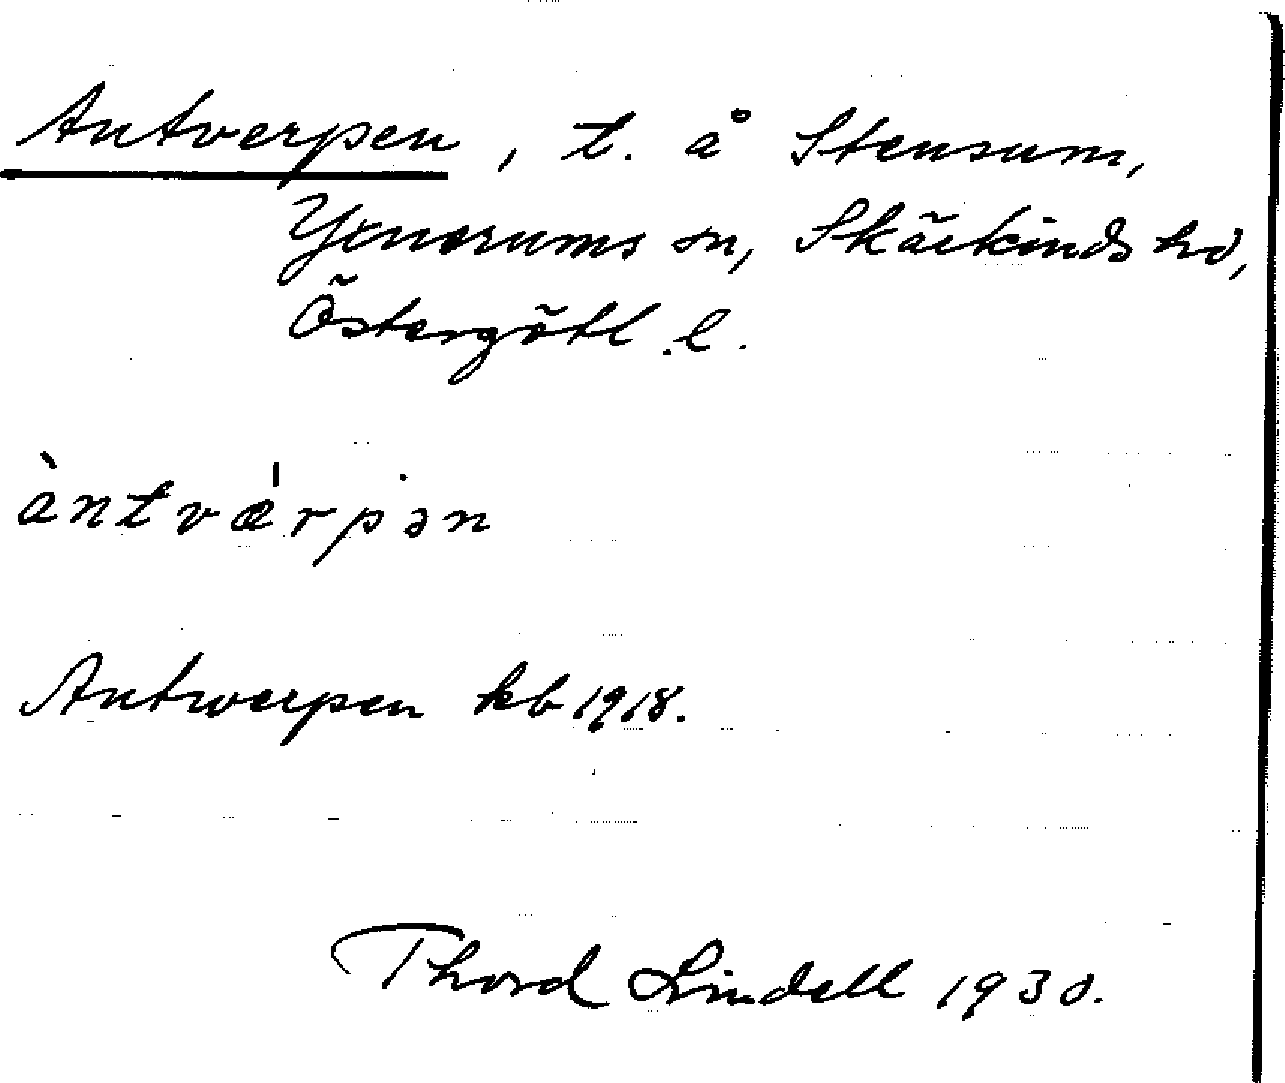 Antverpen, t. å Stensum,
Yxnerums sn, Skärkinds hd,
Östergötl. l.
àntvæ̍rpən
Antwerpen kb 1918.
Thord Lindell 1930.